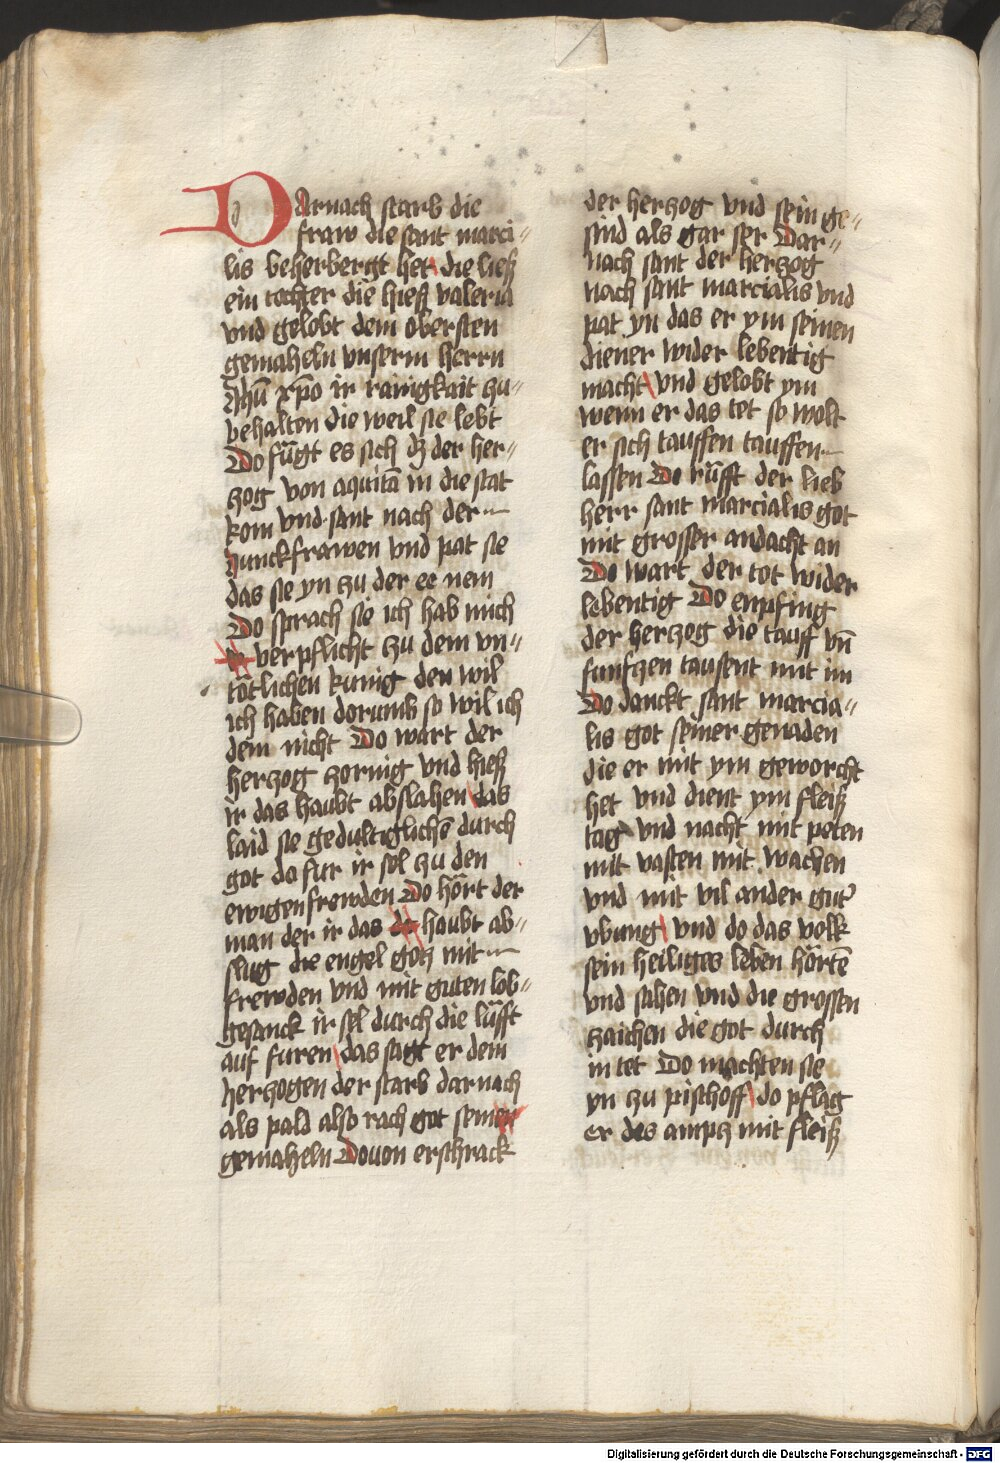 Darnach starb die
fraw die sant marci-
lis beherbergt het die ließ
ein tochter die hieß valeria
vnd gelobt dem obersten
gemaheln vnserm herrn
Jhū xp̄o ir rainigkait zu-
behalten die weil sie lebt
Do fügt es sich dz der her-
zog von aquitā in die stat
kom vnd sant nach der
Junckfrawen vnd pat sie
das sie yn zu der ee nem
Do sprach sie ich hab mich
verpflicht zu dem vn-
tötlichen kunig den wil
ich haben dorumb so wil ich
dem nicht Do wart der
herzog zornig vnd hieß
ir das haubt abslahen das
laid sie gedultiglichē durch
got do fur ir sel zu den
ewigen frewden Do hört der
man der ir das haubt ab-
slug die engel gotz mit
frewden vnd mit guten lob-
gesanck ir sel durch die lüfft
auf furen das sagt er dem
herzogen der starb darnach
als pald also rach got seiner
gemaheln Douon erschrack
der herzog vnd sein ge-
sind als gar ser Dar-
nach sant der herzog
nach sant marcialis vnd
pat yn das er ym seinen
diener wider lebentig
macht vnd gelobt ym
wenn er das tet so wolt
er sich tauffen tauffen
lassen Do rüfft der lieb
herr sant marcialis got
mit grosser andacht an
Do wart der tot wider
lebentig Do enpfing
der herzog die tauff vn̄
funfzen tausent mit im
Do danckt sant marcia-
lis got seiner genaden
die er mit ym geworcht
het vnd dient ym fleiß
tag vnd nacht mit peten
mit vasten mit wachen
vnd mit vil ander gut'
vbung vnd do das volk
sein heiliges leben hörtē
vnd sahen vnd die grossen
zaichen die got durch
in tet Do machten sie
yn zu pischoff do pflag
er des amptz mit fleiß
Digitalisierung gefördert durch die Deutsche Forschungsgemeinschaft - DFG